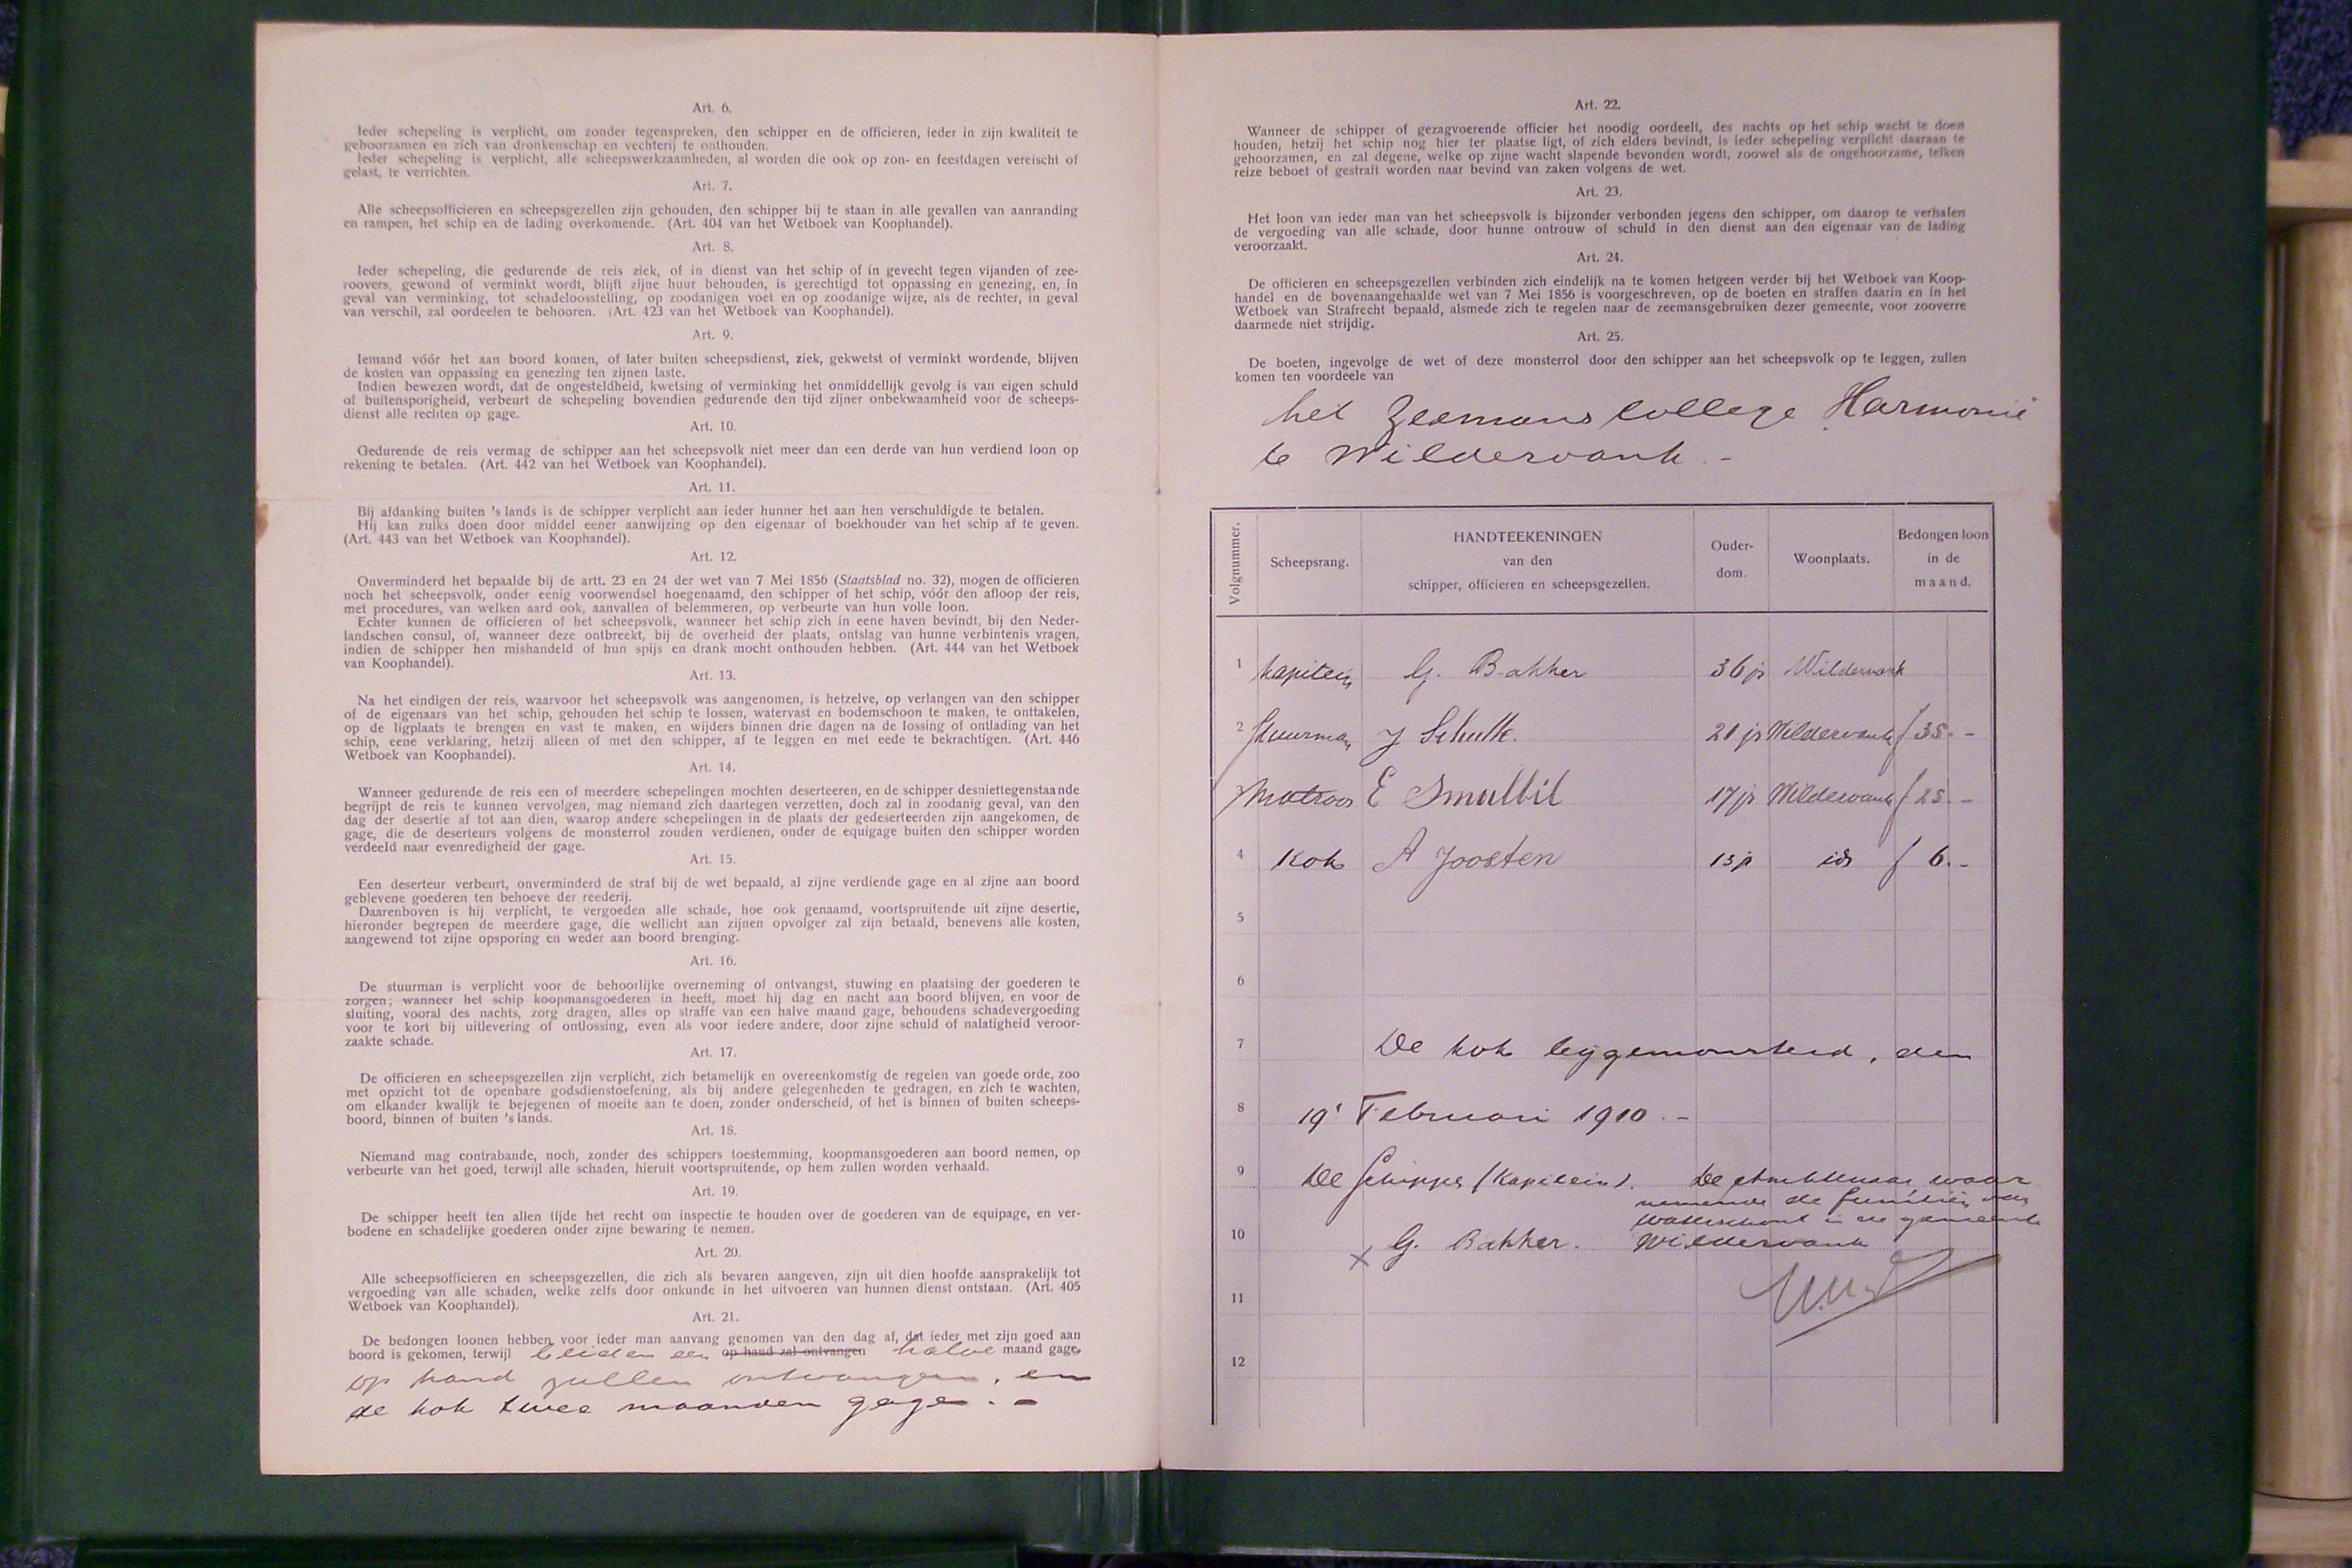 Art. 6.
Ieder schepeling is verplicht, om zonder tegenspreken, den schipper en de officieren, ieder in zijn kwaliteit te
gehoorzamen en zich van dronkenschap en vechterij te onthouden.
Ieder schepeling is verplicht, alle scheepswerkzaamheden, al worden die ook op zon- en feestdagen vereischt of
gelast, te verrichten.
Art. 7.
Alle scheepsofficieren en scheepsgezellen zijn gehouden, den schipper bij te staan in alle gevallen van aanranding
en rampen, het schip en de lading overkomende. (Art. 404 van het Wetboek van Koophandel).
Art. 8.
Ieder schepeling, die gedurende de reis ziek, of in dienst van het schip of in gevecht tegen vijanden of zee-
roovers, gewond of verminkt wordt, blijft zijne huur behouden, is gerechtigd tot oppassing en genezing, en, in
geval van verminking, tot schadeloosstelling, op zoodanigen voet en op zoodanige wijze, als de rechter, in geval
van verschil, zal oordeelen te behooren. (Art. 423 van het Wetboek van Koophandel).
Art. 9.
Iemand vóór het aan boord komen, of later buiten scheepsdienst, ziek, gekwetst of verminkt wordende, blijven
de kosten van oppassing en genezing ten zijnen laste.
Indien bewezen wordt, dat de ongesteldheid, kwetsing of verminking het onmiddellijk gevolg is van eigen schuld
of buitensporigheid, verbeurt de schepeling bovendien gedurende den tijd zijner onbekwaamheid voor de scheeps-
dienst alle rechten op gage.
Art. 10.
Gedurende de reis vermag de schipper aan het scheepsvolk niet meer dan een derde van hun verdiend loon op
rekening te betalen. (Art. 442 van het Wetboek van Koophandel).
Art. 11.
Bij afdanking buiten 's lands is de schipper verplicht aan ieder hunner het aan hen verschuldigde te betalen.
Hij kan zulks doen door middel eener aanwijzing op den eigenaar of boekhouder van het schip af te geven.
(Art. 443 van het Wetboek van Koophandel).
Art. 12.
Onverminderd het bepaalde bij de artt. 23 en 24 der wet van 7 Mei 1856 (Staatsblad no. 32), mogen de officieren
noch het scheepsvolk, onder eenig voorwendsel hoegenaamd, den schipper of het schip, vóór den afloop der reis,
met procedures, van welken aard ook, aanvallen of belemmeren, op verbeurte van hun volle loon.
Echter kunnen de officieren of het scheepsvolk, wanneer het schip zich in eene haven bevindt, bij den Neder-
landschen consul, of, wanneer deze ontbreekt, bij de overheid der plaats, ontslag van hunne verbintenis vragen,
indien de schipper hen mishandeld of hun spijs en drank mocht onthouden hebben. (Art. 444 van het Wetboek
van Koophandel).
Art. 13.
Na het eindigen der reis, waarvoor het scheepsvolk was aangenomen, is hetzelve, op verlangen van den schipper
of de eigenaars van het schip, gehouden het schip te lossen, watervast en bodemschoon te maken, te onttakelen,
op de ligplaats te brengen en vast te maken, en wijders binnen drie dagen na de lossing of ontlading van het
schip, eene verklaring, hetzij alleen of met den schipper, af te leggen en met eede te bekrachtigen. (Art. 446
Wetboek van Koophandel).
Art. 14.
Wanneer gedurende de reis een of meerdere schepelingen mochten deserteeren, en de schipper desniettegenstaande
begrijpt de reis te kunnen vervolgen, mag niemand zich daartegen verzetten, doch zal in zoodanig geval, van den
dag der desertie af tot aan dien, waarop andere schepelingen in de plaats der gedeserteerden zijn aangekomen, de
gage, die de deserteurs volgens de monsterrol zouden verdienen, onder de equigage buiten den schipper worden
verdeeld naar evenredigheid der gage.
Art. 15.
Een deserteur verbeurt, onverminderd de straf bij de wet bepaald, al zijne verdiende gage en al zijne aan boord
geblevene goederen ten behoeve der reederij.
Daarenboven is hij verplicht, te vergoeden alle schade, hoe ook genaamd, voortspruitende uit zijne desertie,
hieronder begrepen de meerdere gage, die wellicht aan zijnen opvolger zal zijn betaald, benevens alle kosten,
aangewend tot zijne opsporing en weder aan boord brenging.
Art. 16.
De stuurman is verplicht voor de behoorlijke overneming of ontvangst, stuwing en plaatsing der goederen te
zorgen; wanneer het schip koopmansgoederen in heeft, moet hij dag en nacht aan boord blijven, en voor de
sluiting, vooral des nachts, zorg dragen, alles op straffe van een halve maand gage, behoudens schadevergoeding
voor te kort bij uitlevering of ontlossing, even als voor iedere andere, door zijne schuld of nalatigheid veroor-
zaakte schade.
Art. 17.
De officieren en scheepsgezellen zijn verplicht, zich betamelijk en overeenkomstig de regelen van goede orde, zoo
met opzicht tot de openbare godsdienstoefening, als bij andere gelegenheden te gedragen, en zich te wachten,
om elkander kwalijk te bejegenen of moeite aan te doen, zonder onderscheid, of het is binnen of buiten scheeps-
boord, binnen of buiten 's lands.
Art. 18.
Niemand mag contrabande, noch, zonder des schippers toestemming, koopmansgoederen aan boord nemen, op
verbeurte van het goed, terwijl alle schaden, hieruit voortspruitende, op hem zullen worden verhaald.
Art. 19.
De schipper heeft ten allen tijde het recht om inspectie te houden over de goederen van de equipage, en ver-
bodene en schadelijke goederen onder zijne bewaring te nemen.
Art. 20.
Alle scheepsofficieren en scheepsgezellen, die zich als bevaren aangeven, zijn uit dien hoofde aansprakelijk tot
vergoeding van alle schaden, welke zelfs door onkunde in het uitvoeren van hunnen dienst ontstaan. (Art. 405
Wetboek van Koophandel).
Art. 21.
De bedongen loonen hebben voor ieder man aanvang genomen van den dag af, dat ieder met zijn goed aan
boord is gekomen, terwijl beiden een op hand zal ontvangen halve maand gage
op hand zullen ontvangen, en
de kok twee maanden gage. -
Art. 22.
Wanneer de schipper of gezagvoerende officier het noodig oordeelt, des nachts op het schip wacht te doen
houden, hetzij het schip nog hier ter plaatse ligt, of zich elders bevindt, is ieder schepeling verplicht daaraan te
gehoorzamen, en zal degene, welke op zijne wacht slapende bevonden wordt, zoowel als de ongehoorzame, telken
reize beboet of gestraft worden naar bevind van zaken volgens de wet.
Art. 23.
Het loon van ieder man van het scheepsvolk is bijzonder verbonden jegens den schipper, om daarop te verhalen
de vergoeding van alle schade, door hunne ontrouw of schuld in den dienst aan den eigenaar van de lading
veroorzaakt.
Art. 24.
De officieren en scheepsgezellen verbinden zich eindelijk na te komen hetgeen verder bij het Wetboek van Koop-
handel en de bovenaangehaalde wet van 7 Mei 1856 is voorgeschreven, op de boeten en straffen daarin en in het
Wetboek van Strafrecht bepaald, alsmede zich te regelen naar de zeemansgebruiken dezer gemeente, voor zooverre
daarmede niet strijdig.
Art. 25.
De boeten, ingevolge de wet of deze monsterrol door den schipper aan het scheepsvolk op te leggen, zullen
komen ten voordeele van
het Zeemans college Harmonie
te Wildervank. -
Volgnummer. Scheepsrang. HANDTEEKENINGEN van den schipper, officieren en scheepsgezellen. Ouder-dom. Woonplaats. Bedongen loon in de maand.
1 Kapitein G. Bakker 36 jr Wildervank
2 Stuurman J Schutte. 21 jr Wildervank f 35. -
3 Matroos E Smulbil 17 jr Wildervank f 25. -
4 Kok A Joosten 15 jr id f 6. -
5
6
7 De kok bijgemonsterd, den
8 19 Februari 1910. -
9 De Schipper (Kapitein). De Ambtenaar waar
nemende de functiën van
Waterschout in de gemeente
10 G. Bakker. Wildervank
11
12